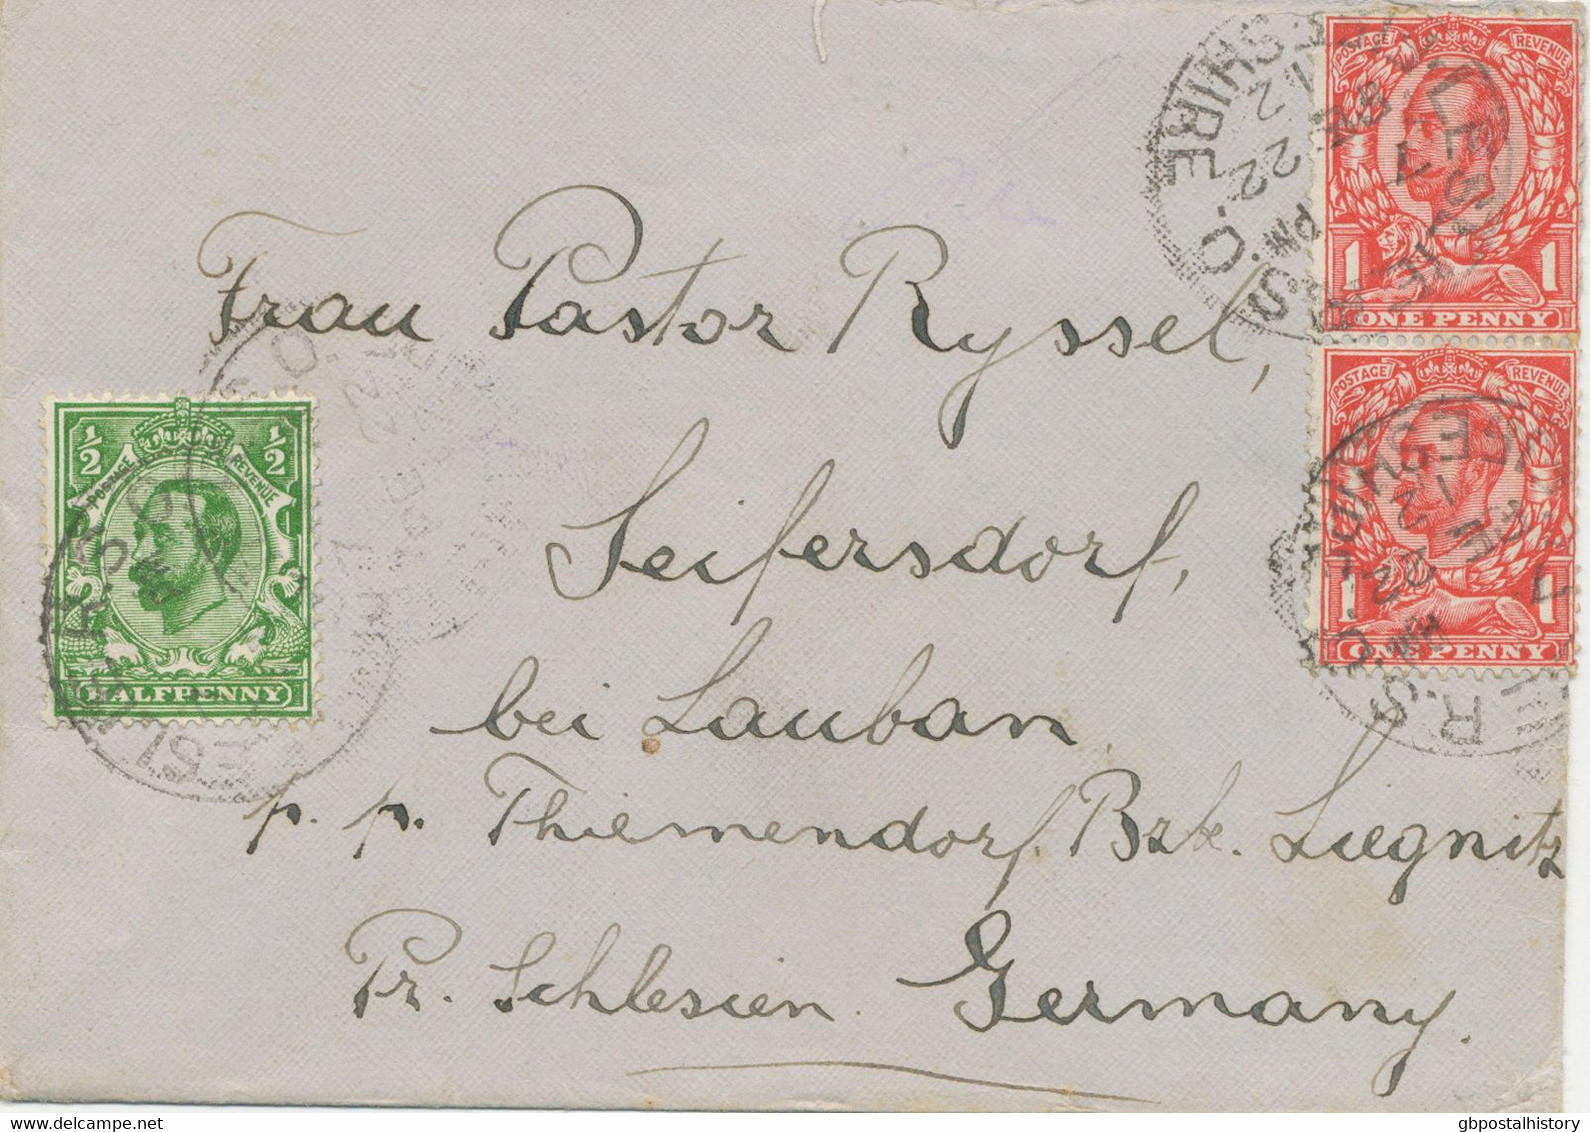 POSTAGE REVENUE
1 1
ONE PENNY
POSTAGE REVENUE
1 1
ONE PENNY
SHIRE
22
PM
R.S.O.
22
½ ½
POSTAGE REVENUE
HALFPENNY
Frau Pastor Ryssel,
Seifersdorf,
bei Lauban
p. p. Thiemendorf. Bzk. Liegnitz
Pr. Schlesien. Germany.
gbpostalhistory